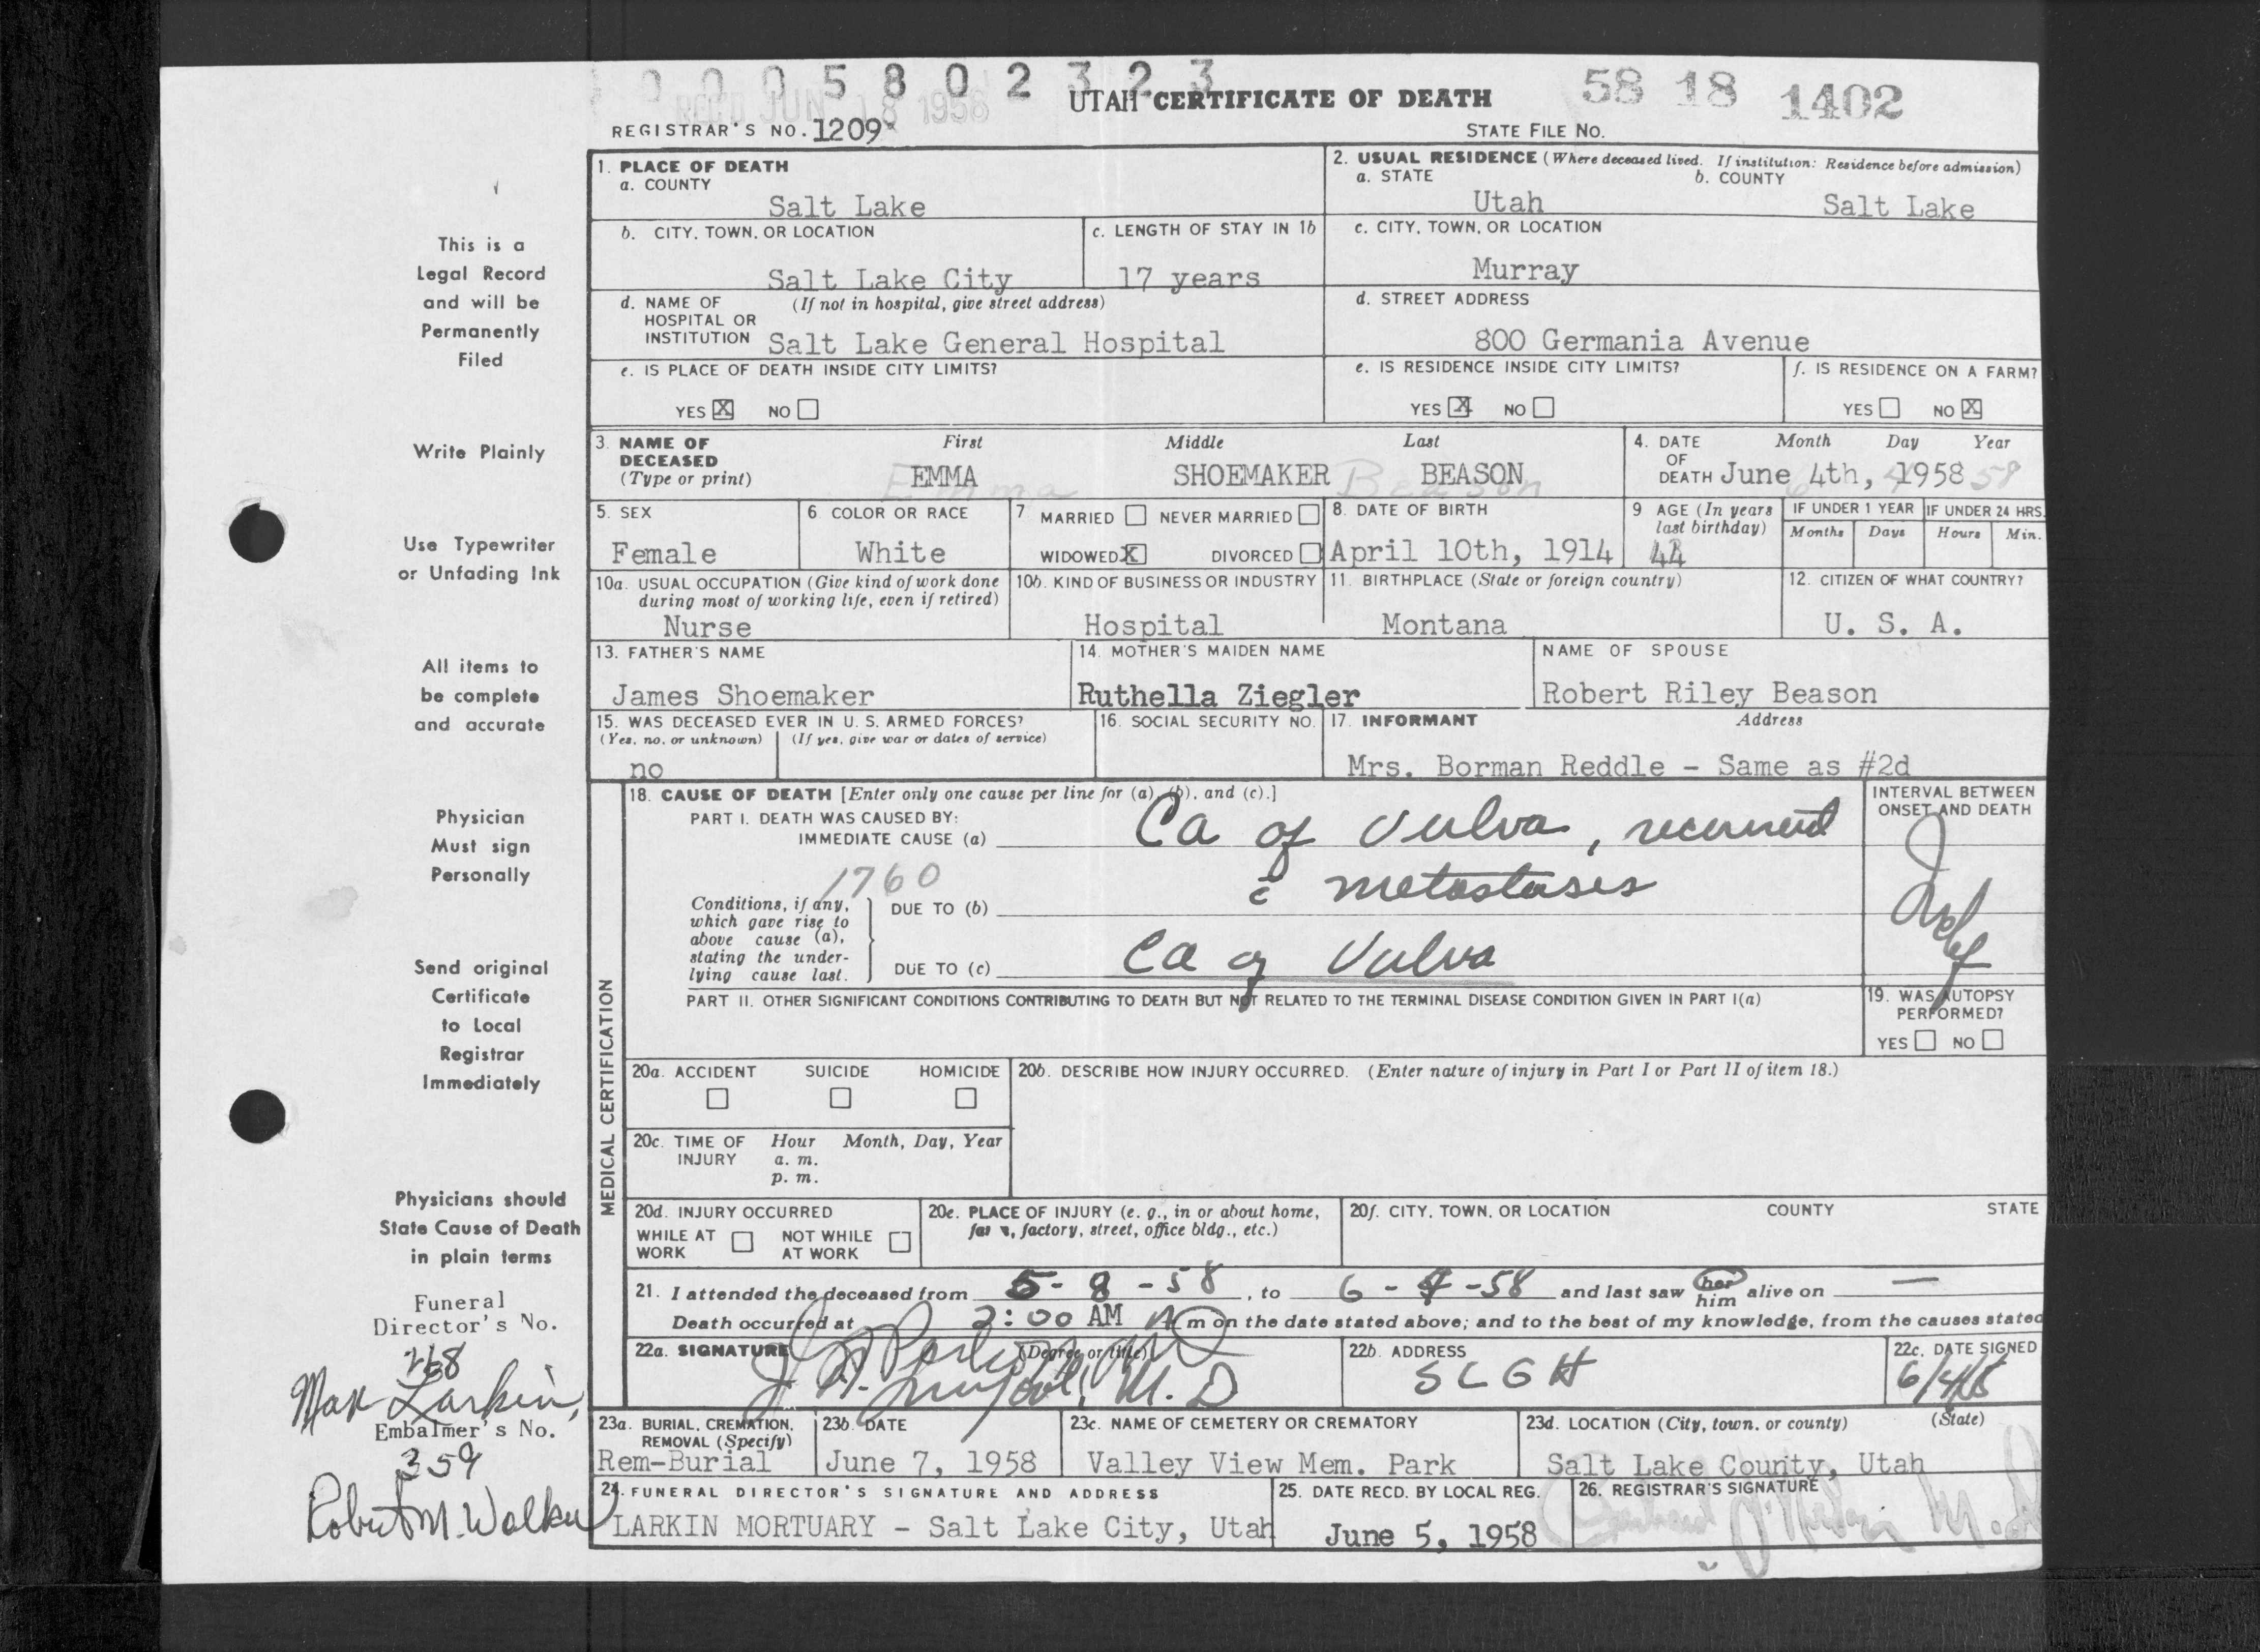 0 0 0 5 8 0 2 3 2 3
REC'D JUN 18 1958
UTAH CERTIFICATE OF DEATH
58 18 1402
REGISTRAR'S NO. 1209
STATE FILE NO.
1. PLACE OF DEATH
a. COUNTY
Salt Lake
2. USUAL RESIDENCE (Where deceased lived. If institution: Residence before admission)
a. STATE b. COUNTY
Utah Salt Lake
b. CITY, TOWN, OR LOCATION
Salt Lake City
c. LENGTH OF STAY IN 1b
17 years
c. CITY, TOWN, OR LOCATION
Murray
d. NAME OF HOSPITAL OR INSTITUTION (If not in hospital, give street address)
Salt Lake General Hospital
d. STREET ADDRESS
800 Germania Avenue
e. IS PLACE OF DEATH INSIDE CITY LIMITS?
YES X NO
e. IS RESIDENCE INSIDE CITY LIMITS?
YES X NO
f. IS RESIDENCE ON A FARM?
YES NO X
3. NAME OF DECEASED (Type or print)
First Middle Last
EMMA SHOEMAKER BEASON
Emma Beason
4. DATE OF DEATH
Month Day Year
June 4th, 1958
5. SEX
Female
6. COLOR OR RACE
White
7 MARRIED NEVER MARRIED
WIDOWED X DIVORCED
8. DATE OF BIRTH
April 10th, 1914
9 AGE (In years last birthday)
44
IF UNDER 1 YEAR
Months Days
IF UNDER 24 HRS.
Hours Min.
10a. USUAL OCCUPATION (Give kind of work done during most of working life, even if retired)
Nurse
10b. KIND OF BUSINESS OR INDUSTRY
Hospital
11. BIRTHPLACE (State or foreign country)
Montana
12. CITIZEN OF WHAT COUNTRY?
U. S. A.
13. FATHER'S NAME
James Shoemaker
14. MOTHER'S MAIDEN NAME
Ruthella Ziegler
NAME OF SPOUSE
Robert Riley Beason
15. WAS DECEASED EVER IN U. S. ARMED FORCES?
(Yes, no, or unknown) (If yes, give war or dates of service)
no
16. SOCIAL SECURITY NO.
17. INFORMANT Address
Mrs. Borman Reddle - Same as #2d
MEDICAL CERTIFICATION
18. CAUSE OF DEATH [Enter only one cause per line for (a), (b), and (c).]
PART I. DEATH WAS CAUSED BY:
IMMEDIATE CAUSE (a) Ca of Vulva, recurrent
1760
c̄ metastases
Conditions, if any, which gave rise to above cause (a), stating the underlying cause last.
DUE TO (b)
DUE TO (c) Ca of Vulva
INTERVAL BETWEEN ONSET AND DEATH
PART II. OTHER SIGNIFICANT CONDITIONS CONTRIBUTING TO DEATH BUT NOT RELATED TO THE TERMINAL DISEASE CONDITION GIVEN IN PART I(a)
19. WAS AUTOPSY PERFORMED?
YES NO
20a. ACCIDENT SUICIDE HOMICIDE
20b. DESCRIBE HOW INJURY OCCURRED. (Enter nature of injury in Part I or Part II of item 18.)
20c. TIME OF INJURY
Hour Month, Day, Year
a. m.
p. m.
20d. INJURY OCCURRED
WHILE AT WORK NOT WHILE AT WORK
20e. PLACE OF INJURY (e. g., in or about home, farm, factory, street, office bldg., etc.)
20f. CITY, TOWN, OR LOCATION COUNTY STATE
21. I attended the deceased from 5-8-58, to 6-4-58 and last saw her him alive on —
Death occurred at 2:00 AM m on the date stated above; and to the best of my knowledge, from the causes stated
22a. SIGNATURE (Degree or title)
M. D
22b. ADDRESS
SLGH
22c. DATE SIGNED
23a. BURIAL, CREMATION, REMOVAL (Specify)
Rem-Burial
23b. DATE
June 7, 1958
23c. NAME OF CEMETERY OR CREMATORY
Valley View Mem. Park
23d. LOCATION (City, town, or county) (State)
Salt Lake County, Utah
24. FUNERAL DIRECTOR'S SIGNATURE AND ADDRESS
LARKIN MORTUARY - Salt Lake City, Utah
25. DATE RECD. BY LOCAL REG.
June 5, 1958
26. REGISTRAR'S SIGNATURE
This is a
Legal Record
and will be
Permanently
Filed
Write Plainly
Use Typewriter
or Unfading Ink
All items to
be complete
and accurate
Physician
Must sign
Personally
Send original
Certificate
to Local
Registrar
Immediately
Physicians should
State Cause of Death
in plain terms
Funeral
Director's No.
268
Max Larkin,
Embalmer's No.
359
Robert M. Walker